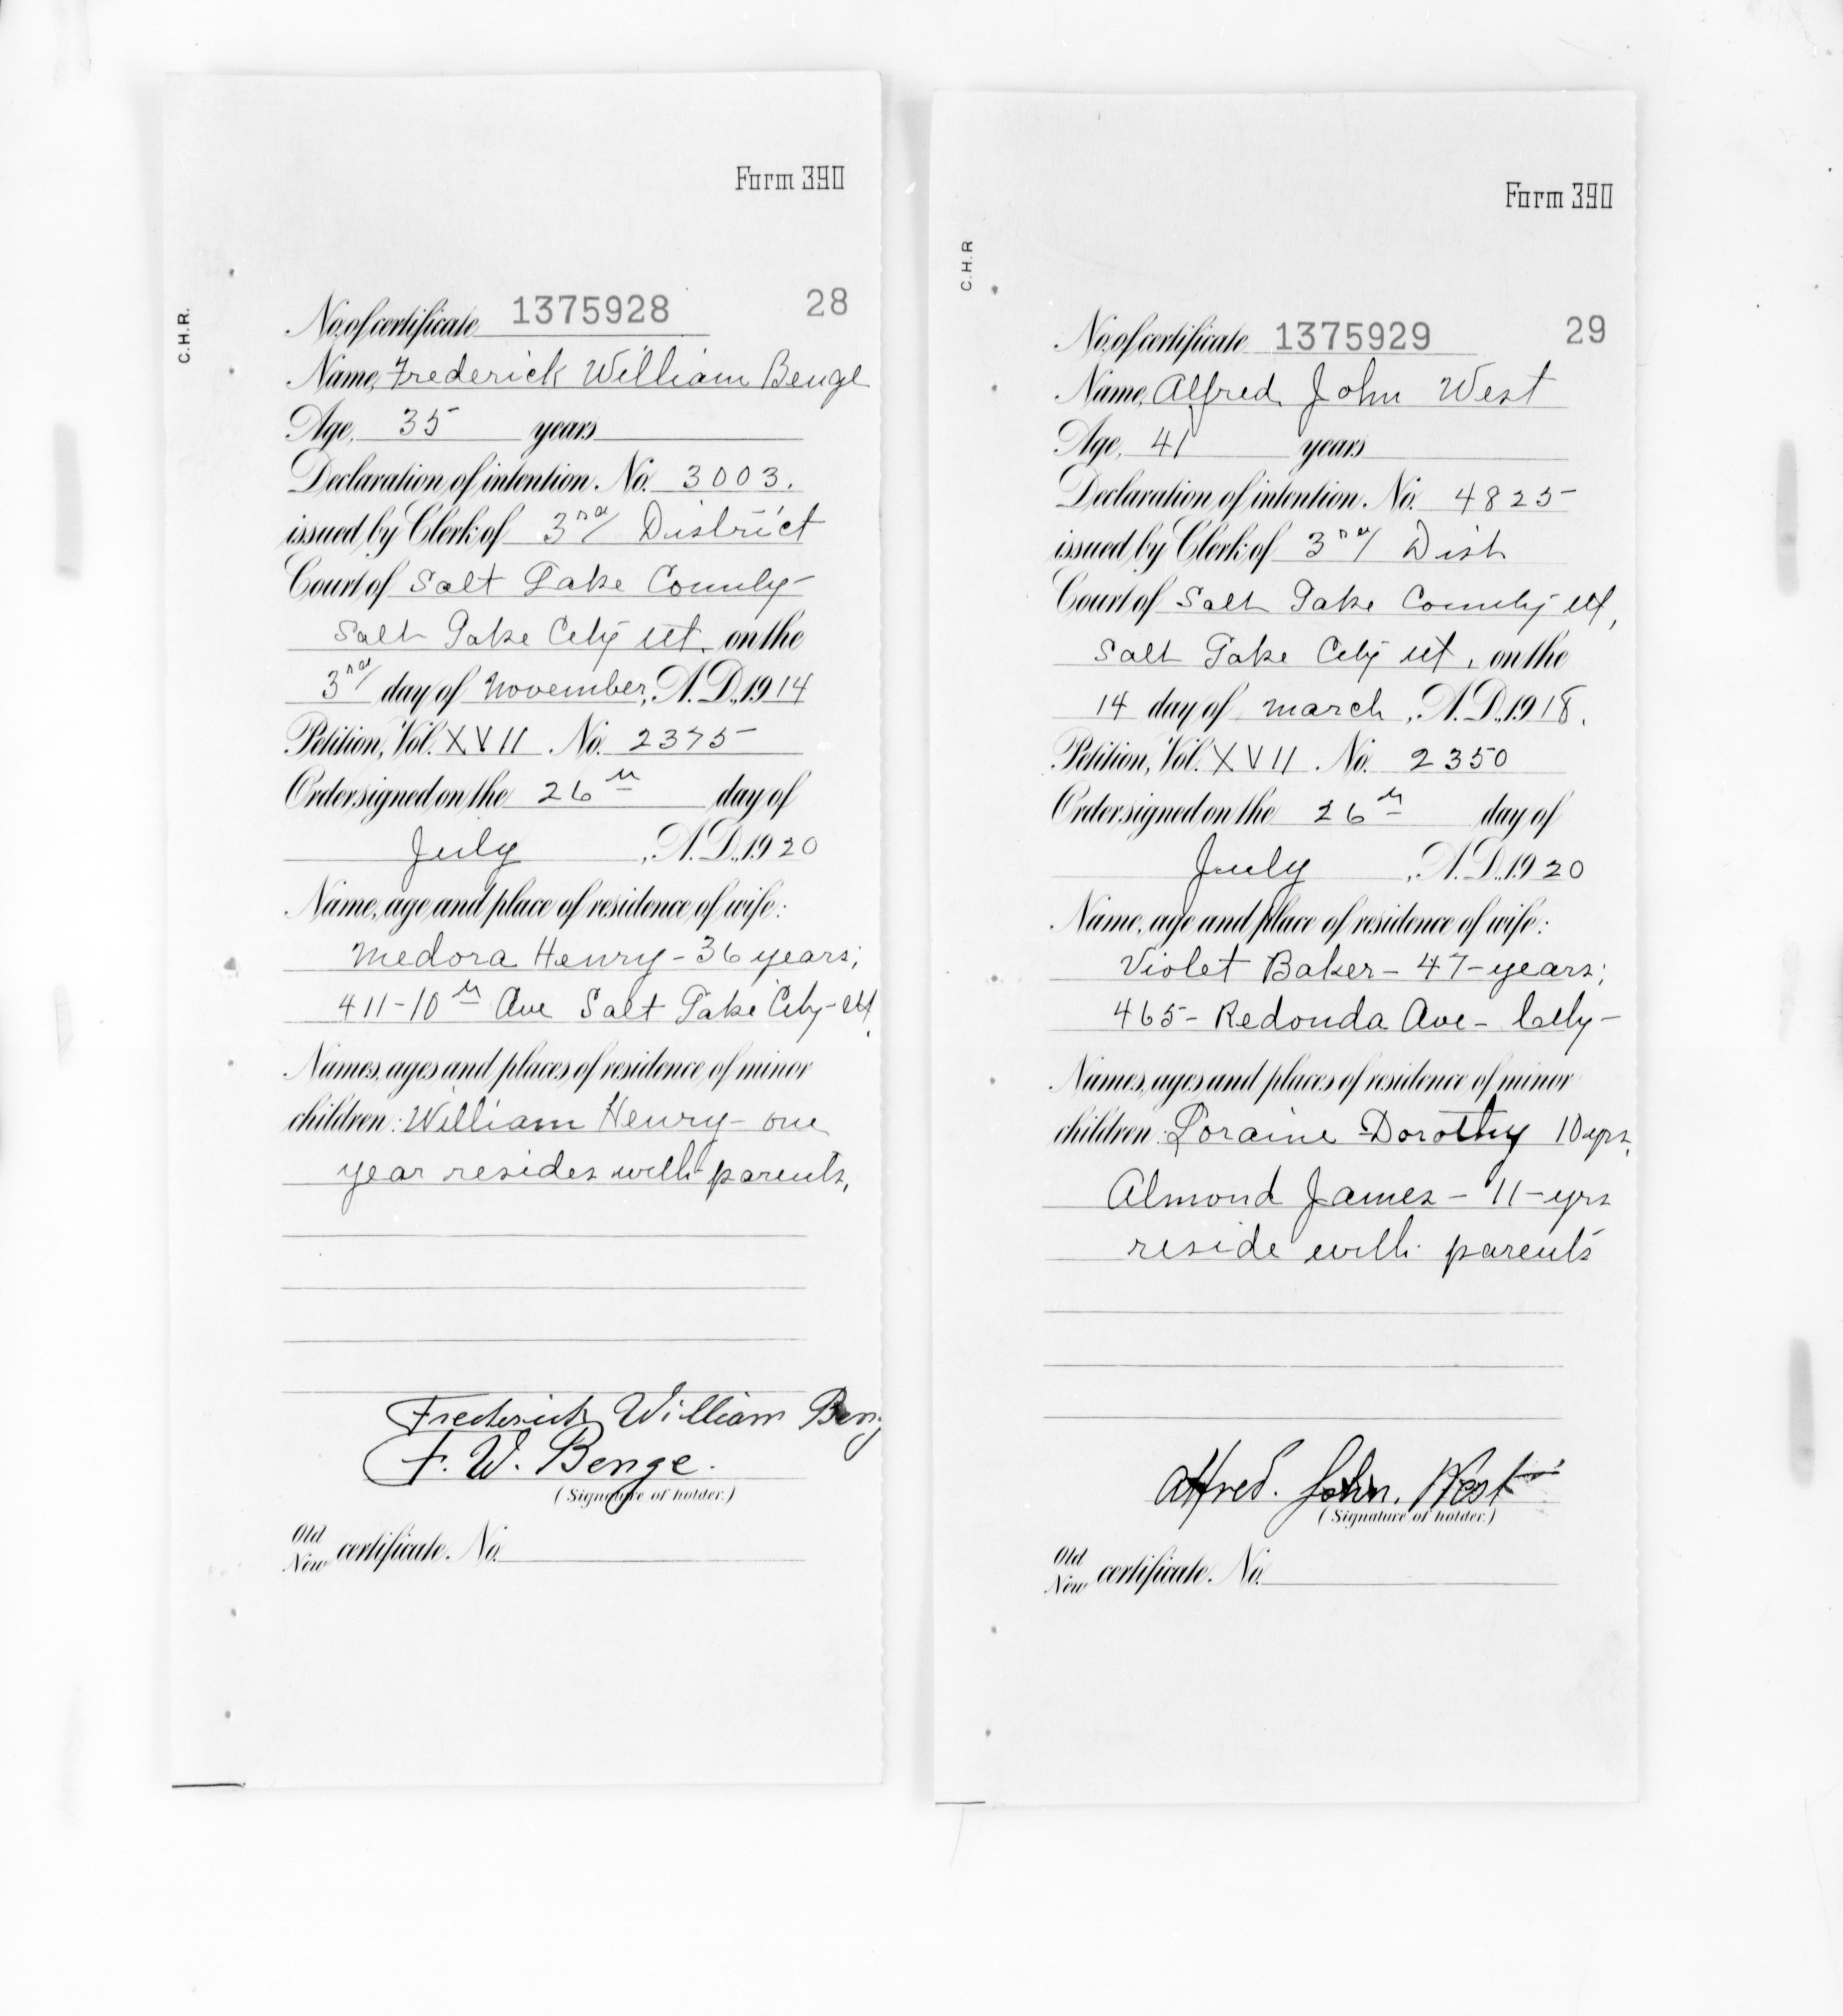 Form 390
C.H.R.
No. of certificate 1375928 28
Name, Frederick William Benge
Age, 35 years
Declaration of intention. No. 3003.
issued by Clerk of 3rd District
Court of Salt Lake County
Salt Lake City Ut. on the
3rd day of November, A.D., 1914
Petition, Vol. XVII No. 2375
Order signed on the 26th day of
July, A.D., 1920
Name, age and place of residence of wife:
Medora Henry - 36 years;
411-10th Ave Salt Lake City - Ut.
Names, ages and places of residence of minor
children: William Henry - one
year resides with parents,
Frederick William Beng
F. W. Benge.
(Signature of holder.)
Old
New certificate. No.
Form 390
C.H.R
No. of certificate 1375929 29
Name, Alfred John West
Age, 41 years
Declaration of intention. No. 4825
issued by Clerk of 3rd Dist
Court of Salt Lake County Ut,
Salt Lake City Ut, on the
14 day of March, A.D., 1918.
Petition, Vol. XVII. No. 2350
Order signed on the 26th day of
July, A.D., 1920
Name, age and place of residence of wife:
Violet Baker - 47 - years;
465 - Redonda Ave - City -
Names, ages and places of residence of minor
children: Loraine Dorothy 10 yrs,
Almond James - 11 - yrs
reside with parents
Alfred. John. West
(Signature of holder.)
Old
New certificate. No.